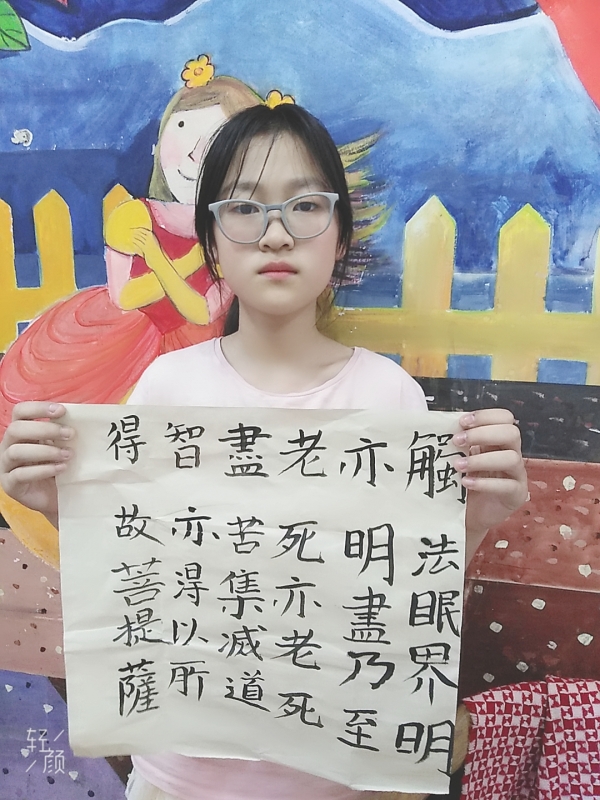 觸法眠界明
亦明盡乃至
老死亦老死
盡苦集滅道
智亦得以所
得故菩提薩
轻颜